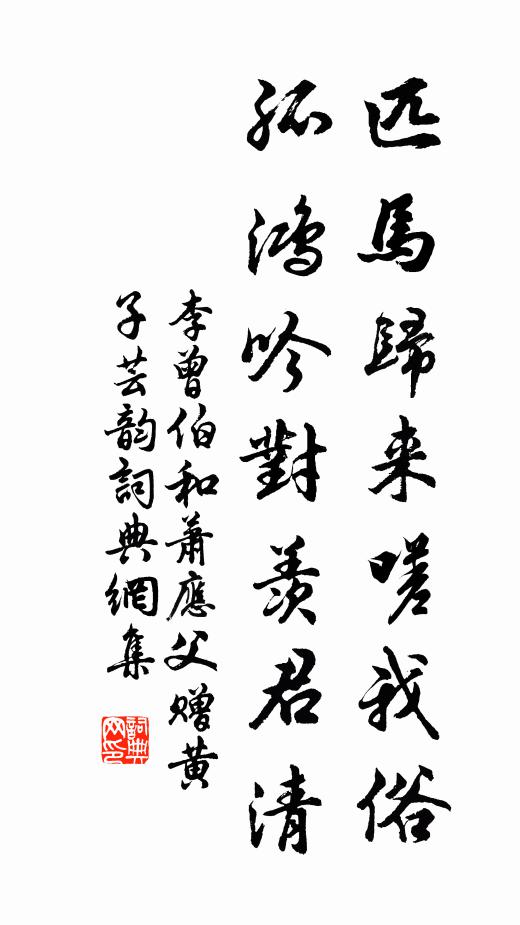 匹馬歸来嗟我俗
孤鴻吟對羨君清
李曾伯和蕭應父贈黄
子芸韵詞典網集
詞典網印